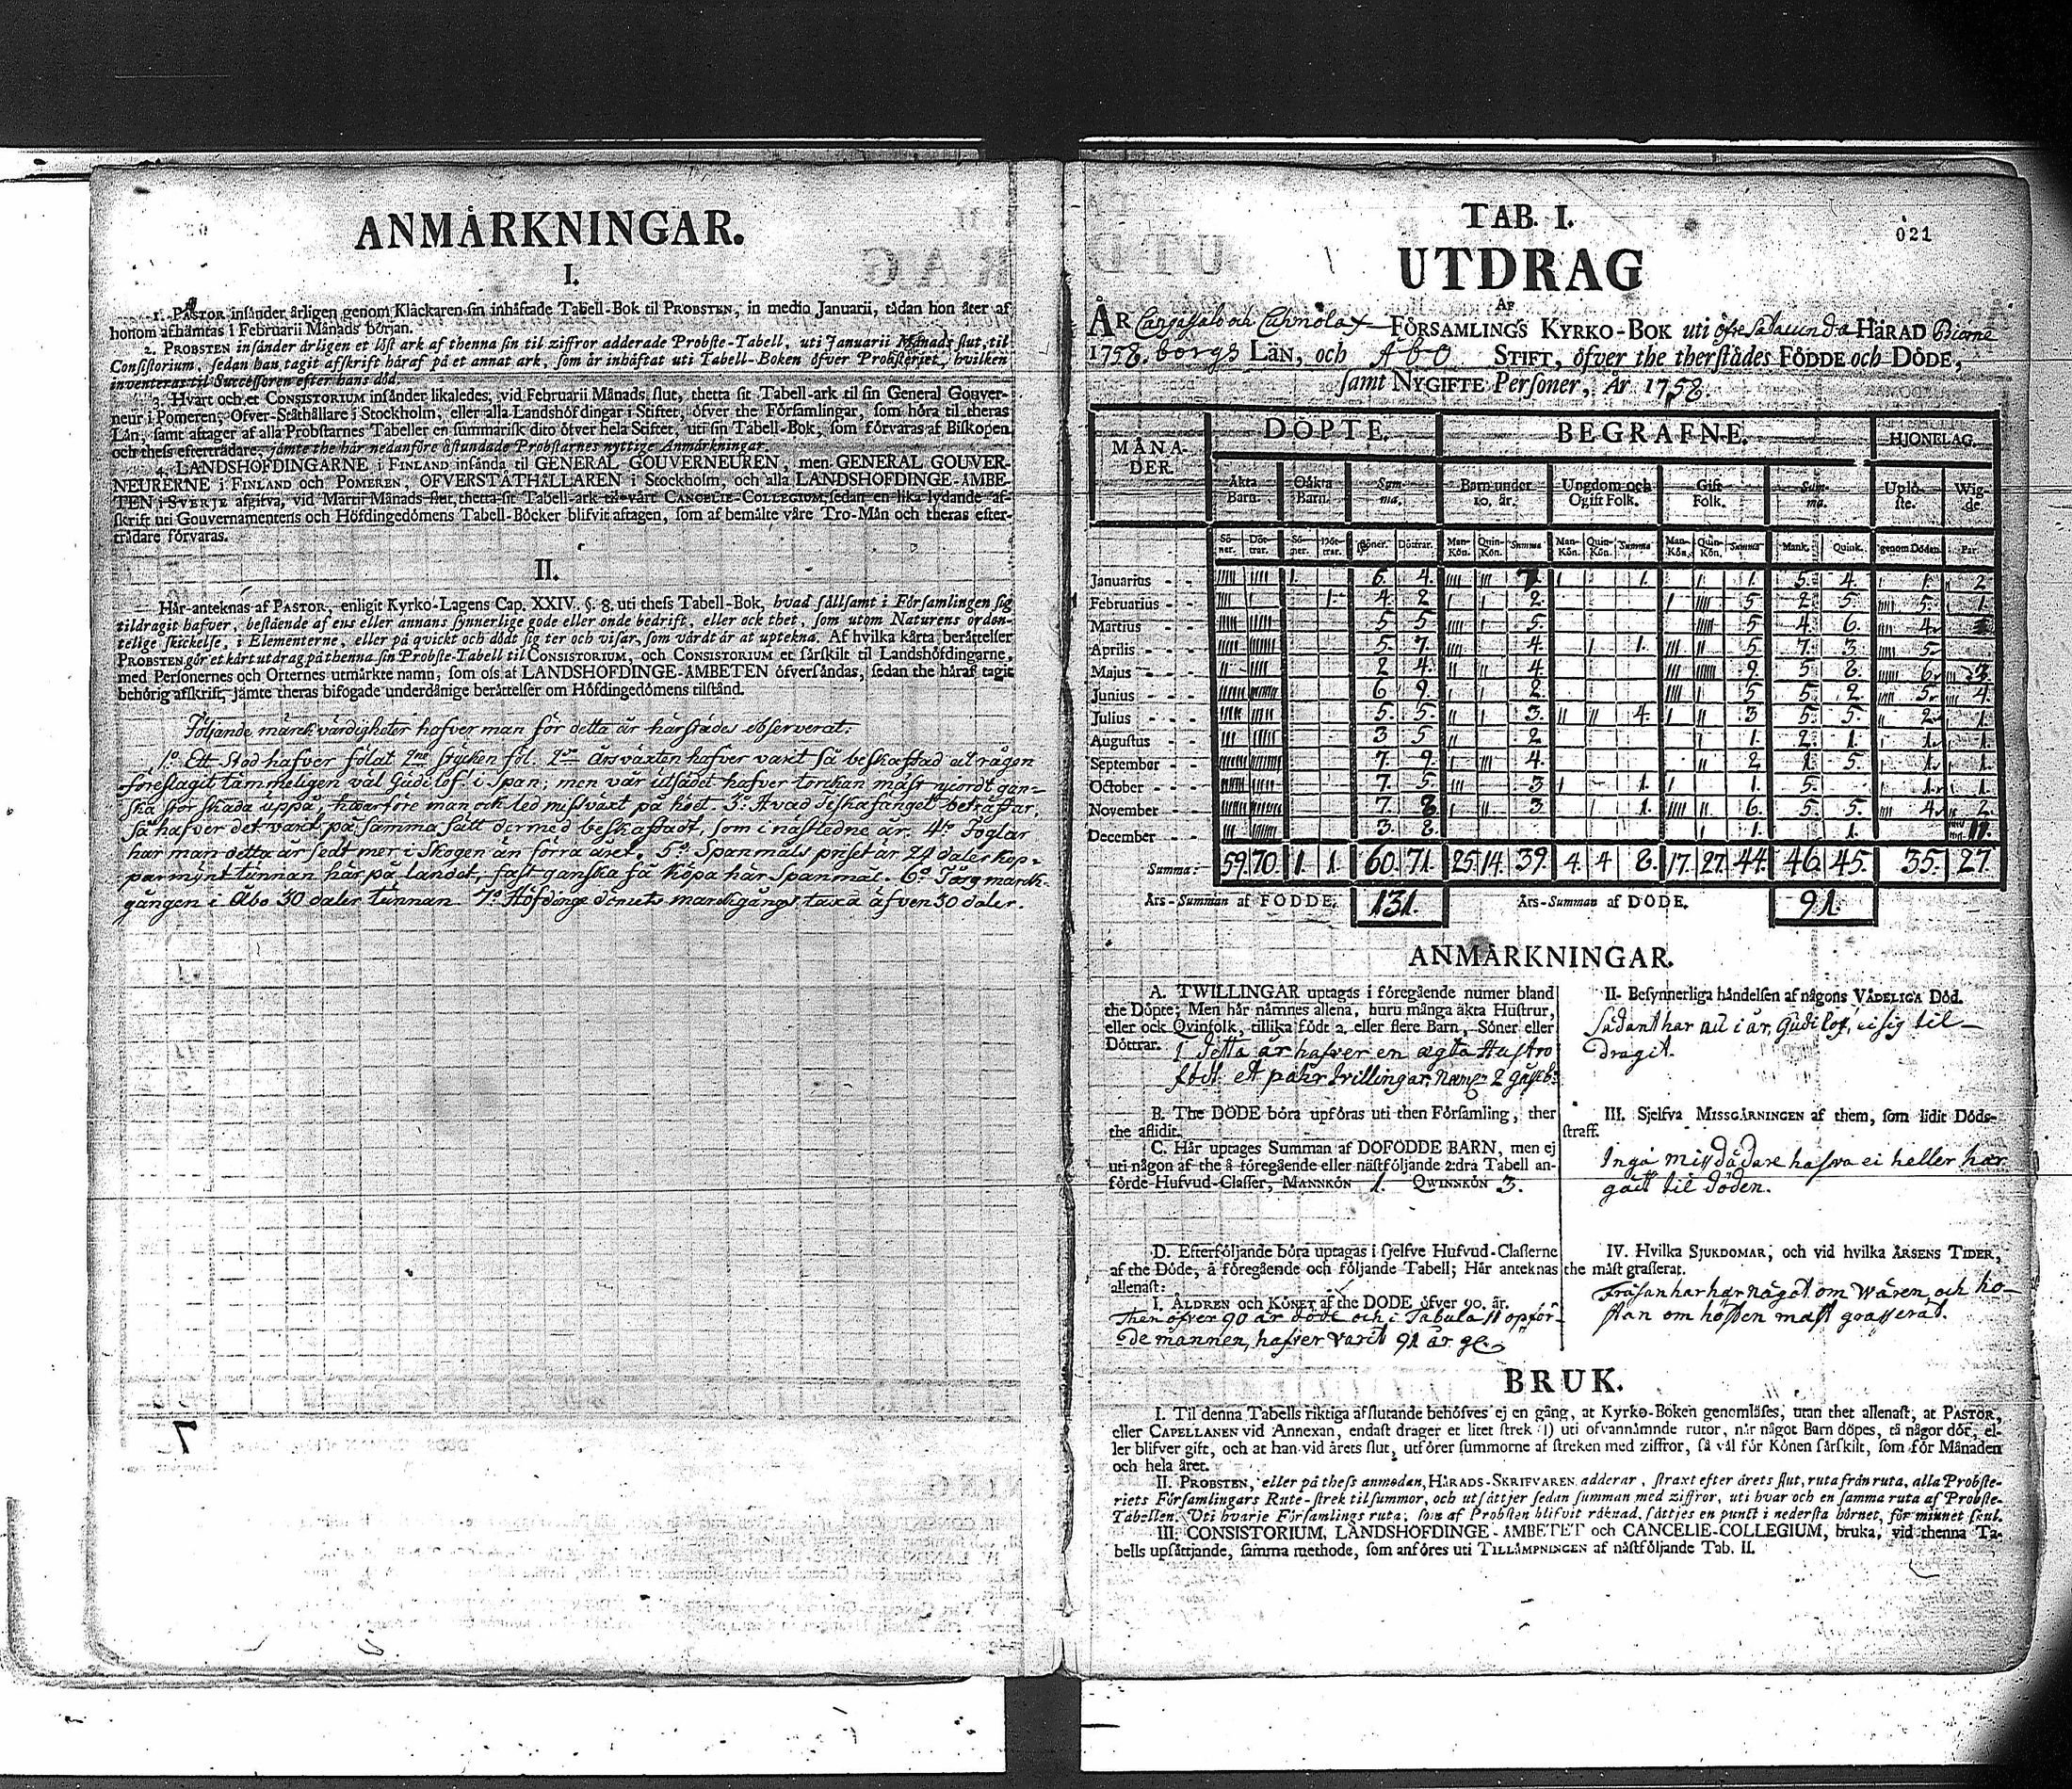 ANMÄRKNINGAR.
I.
1. PASTOR insänder årligen genom Klåckaren sin inhäftade Tabell-Bok til PROBSTEN, in medio Januarii, tådan hon åter af
honom afhämtas i Februarii Månads början.
2. PROBSTEN insänder årligen et löst ark af thenna sin til ziffror adderade Probste-Tabell, uti Januarii Månads slut, til
Consistorium, sedan han tagit afskrift häraf på et annat ark, som är inhäftat uti Tabell-Boken öfver Probsteriet, hvilken
inventeras til Successoren efter hans död.
3. Hvart och et CONSISTORIUM insänder likaledes, vid Februarii Månads slut, thetta sit Tabell-ark til sin General Gouver-
neur i Pomeren, Öfver-Ståthållare i Stockholm, eller alla Landshöfdingar i Stiftet, öfver the Församlingar, som höra til theras
Län, samt aftager af alla Probstarnes Tabeller en summarisk dito öfver hela Stiftet, uti sin Tabell-Bok, som förvaras af Biskopen
och thess efterträdare, jämte the här nedanföre åstundade Probstarnes nyttige Anmärkningar.
4. LANDSHÖFDINGARNE i FINLAND insända til GENERAL GOUVERNEUREN, men GENERAL GOUVER-
NEURERNE i FINLAND och POMEREN, ÖFVERSTÅTHÅLLAREN i Stockholm, och alla LANDSHÖFDINGE-ÄMBE-
TEN i SVERJE afgifva, vid Martii Månads slut, thetta sit Tabell-ark til vårt CANCELIE-COLLEGIUM, sedan en lika lydande af-
skrift uti Gouvernamentens och Höfdingedömens Tabell-Böcker blifvit aftagen, som af bemälte våre Tro-Män och theras efter-
trädare förvaras.
II.
Här anteknas af PASTOR, enligit Kyrko-Lagens Cap. XXIV. §. 8. uti thess Tabell-Bok, hvad sällsamt i Församlingen sig
tildragit hafver, bestående af ens eller annans synnerlige gode eller onde bedrift, eller ock thet, som utom Naturens orden-
telige skickelse, i Elementerne, eller på quickt och dödt sig ter och visar, som värdt är at uptekna. Af hvilka kårta berättelser
PROBSTEN gör et kårt utdrag på thenna sin Probste-Tabell til CONSISTORIUM, och CONSISTORIUM et särskilt til Landshöfdingarne,
med Personernes och Orternes utmärkte namn, som oss af LANDSHÖFDINGE-ÄMBETEN öfversändas, sedan the häraf tagit
behörig afskrift, jämte theras bifogade underdånige berättelser om Höfdingedömens tilstånd.
Följande märckvärdigheter hafver man för detta år härstädes observerat:
1o Ett Stod hafver fölat 2ne stycken föl. 2do Årsväxten hafver varit så beskaffad at rågen
föreslagit tämmeligen väl Gudi lof! i Span; men vår utsädet hafver torckan mäst giordt gan-
ska stor skada uppå, hwarföre man och led missväxt på höet. 3o Hvad Fiskafänget beträffar,
så hafver det varit på samma sätt dermed beskaffadt, som i nästledne år. 4to Foglar
har man detta år sedt mer i Skogen än förra året. 5o Spanmåls priset är 24 daler kop-
parmynt tunnan här på landet, fast ganska få köpa här Spanmål. 6o Torg marck-
gången i Åbo 30 daler tunnan 7o Höfdinge dömets marckgångs taxa äfven 30 daler.
7
TAB. I.
021
UTDRAG
AF
ÅR Cangasala och Cuhmolax FÖRSAMLINGS KYRKO-BOK uti öfre Satacunda HÄRAD Biörne
1758. borgs LÄN, och Åbo STIFT, öfver the therstädes FÖDDE och DÖDE,
samt NYGIFTE Personer, År 1758.
MÅNA-DER. DÖPTE. BEGRAFNE. HJONELAG.
Äkta Barn. Oäkta Barn. Summa. Barn under 10. år. Ungdom och Ogift Folk. Gift Folk. Summa. Uplöste. Wigde
Söner. Döttrar. Söner. Döttrar. Söner. Döttrar. Man-Kön. Quin-Kön. Summa Man-Kön. Quin-Kön. Summa Man-Kön. Quin-Kön. Summa Mank. Quink. genom Döden. Par.
Januarius - - 6. 4. 7. 1. 1. 5. 4. 1. 2
Februarius - - 4. 2 2 5 2. 5. 5. 1.
Martius - - 5 5 5. 5 4. 6. 4.
Aprilis - - - 5. 7. 4. 1. 5 7. 3 5.
Majus - - - 2 4. 4 9. 5 8. 6.
Junius - - - 6 9. 2. 5 5. 2. 5. 4
Julius - - - 5. 5. 3. 4. 3 5 5. 2. 1.
Augustus - - 3 5 2 1. 2. 1. 1. 1.
September - - 7. 9. 4. 2 1. 5. 1. 1.
October - - - 7. 5. 3 1. 1. 5. 1. 1.
November - - - 7 8 3 1. 6. 5. 5 4. 2.
December - - 3. 8. 1. 1. 11.
Summa: 59. 70. 1. 1. 60. 71. 25. 14. 39. 4. 4 8. 17. 27. 44. 46. 45. 35. 27.
Års-Summan af FÖDDE. 131. Års-Summan af DÖDE. 91.
ANMÄRKNINGAR.
A. TWILLINGAR uptagas i föregående numer bland
the Döpte; Men här nämnes allena, huru många äkta Hustrur,
eller ock Qvinfolk, tillika födt 2. eller flere Barn, Söner eller
Döttrar. I detta år hafver en ægta Hustro
födt et pahr tvillingar, næmln 2 gåsseb:
B. The DÖDE böra upföras uti then Församling, ther
the aflidit.
C. Här uptages Summan af DÖFÖDDE BARN, men ej
uti någon af the å föregående eller nästföljande 2:dra Tabell an-
förde Hufvud-Classer, MANNKÖN 1. QWINNKÖN 3.
D. Efterföljande böra uptagas i sjelfve Hufvud-Classerne
af the Döde, å föregående och följande Tabell; Här anteknas
allenast:
I. ÅLDREN och KÖNET af the DÖDE öfver 90. år.
Then öfver 90 år döde och i Tabula II opför-
de mannen, hafver varit 91 år gl.
II. Besynnerliga händelsen af någons VÅDELIGA Död.
Sådant har nu i år, Gudi lof, ei sig til-
dragit.
III. Sjelfva MISSGÄRNINGEN af them, som lidit Döds-
straff.
Inga missdådare hafva ei heller här
gått til döden.
IV. Hvilka SJUKDOMAR, och vid hvilka ÅRSENS TIDER,
the mäst grasserat.
Fråsan har här något om Wåren, och ho-
stan om hösten mäst grasserat.
BRUK.
I. Til denna Tabells riktiga afslutande behöfves ej en gång, at Kyrko-Boken genomläses, utan thet allenast, at PASTOR,
eller CAPELLANEN vid Annexan, endast drager et litet strek (1) uti ofvannämnde rutor, när något Barn döpes, tå någor dör, el-
ler blifver gift, och at han vid årets slut, utförer summorne af streken med ziffror, så väl för Könen särskilt, som för Månaden
och hela året.
II. PROBSTEN, eller på thess anmodan, HÄRADS-SKRIFVAREN adderar, straxt efter årets slut, ruta från ruta, alla Probste-
riets Församlingars Rute-strek til summor, och utsättjer sedan summan med ziffror, uti hvar och en samma ruta af Probste-
Tabellen. Uti hvarje Församlings ruta, som af Probsten blifvit räknad, sättjes en punct i nedersta hörnet, för minnet skul.
III. CONSISTORIUM, LANDSHÖFDINGE-ÄMBETET och CANCELIE-COLLEGIUM, bruka, vid thenna Ta-
bells upsättjande, samma methode, som anföres uti TILLÄMPNINGEN af nästföljande Tab. II.